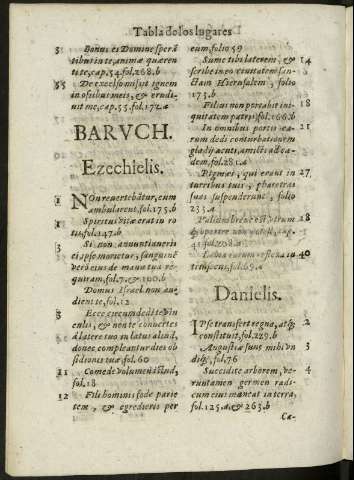 Tabla de los lugares
3 Bonus es Domine sperã
tibus in te, animæ quæren
ti te, cap. 54. fol. 268. b
55 De excelso misit ignem
in ossibus meis, & erudi-
uit me, cap. 55. fol. 171. a
BARVCH.
Ezechielis.
1 NOn reuertebãtur, cum
ambularent, fol. 175. b
1 Spiritus vitæ erat in ro
tis, fol. 147. b
3 Si non annuntiaueris
ei, ipse morietur, sanguinẽ
verò eius de manu tua re-
quiram, fol. 7. & 100. b
Domus Israel non au-
dient te, fol. 12
8 Ecce circumdedi te vin
culis, & non te conuertes
à latere tuo in latus aliud,
donec compleantur dies ob
sidionis tuæ. fol. 60
11 Comede volumen istud,
fol. 18
12 Fili hominis fode parie
tem, & egredieris per
eum, folio 59
Sume tibi laterem, & 14
scribe in eo ciuitatem san-
ctam Hierusalem, folio
173. b
Filius non portabit ini- 18
quitatem patris, fol. 166. b
In omnibus portis ea- 21
rum dedi conturbationem
gladij acuti, amicti ad cæ-
dem, fol. 281. a
Pigmæi, qui erant in 27
turribus tuis, pharetras
suas suspenderunt, folio
233. a
18
fol. 208. a
40
fol. 69. a
Danielis.
IPse transfert regna, atq; 2
constituit, fol. 229. b
Augustiæ sunt mihi vn 3
diq;, fol. 76
Succidite arborem, ve- 4
runtamen germen radi-
cum eius maneat in terra,
fol. 125. a. & 263. b
Ca-